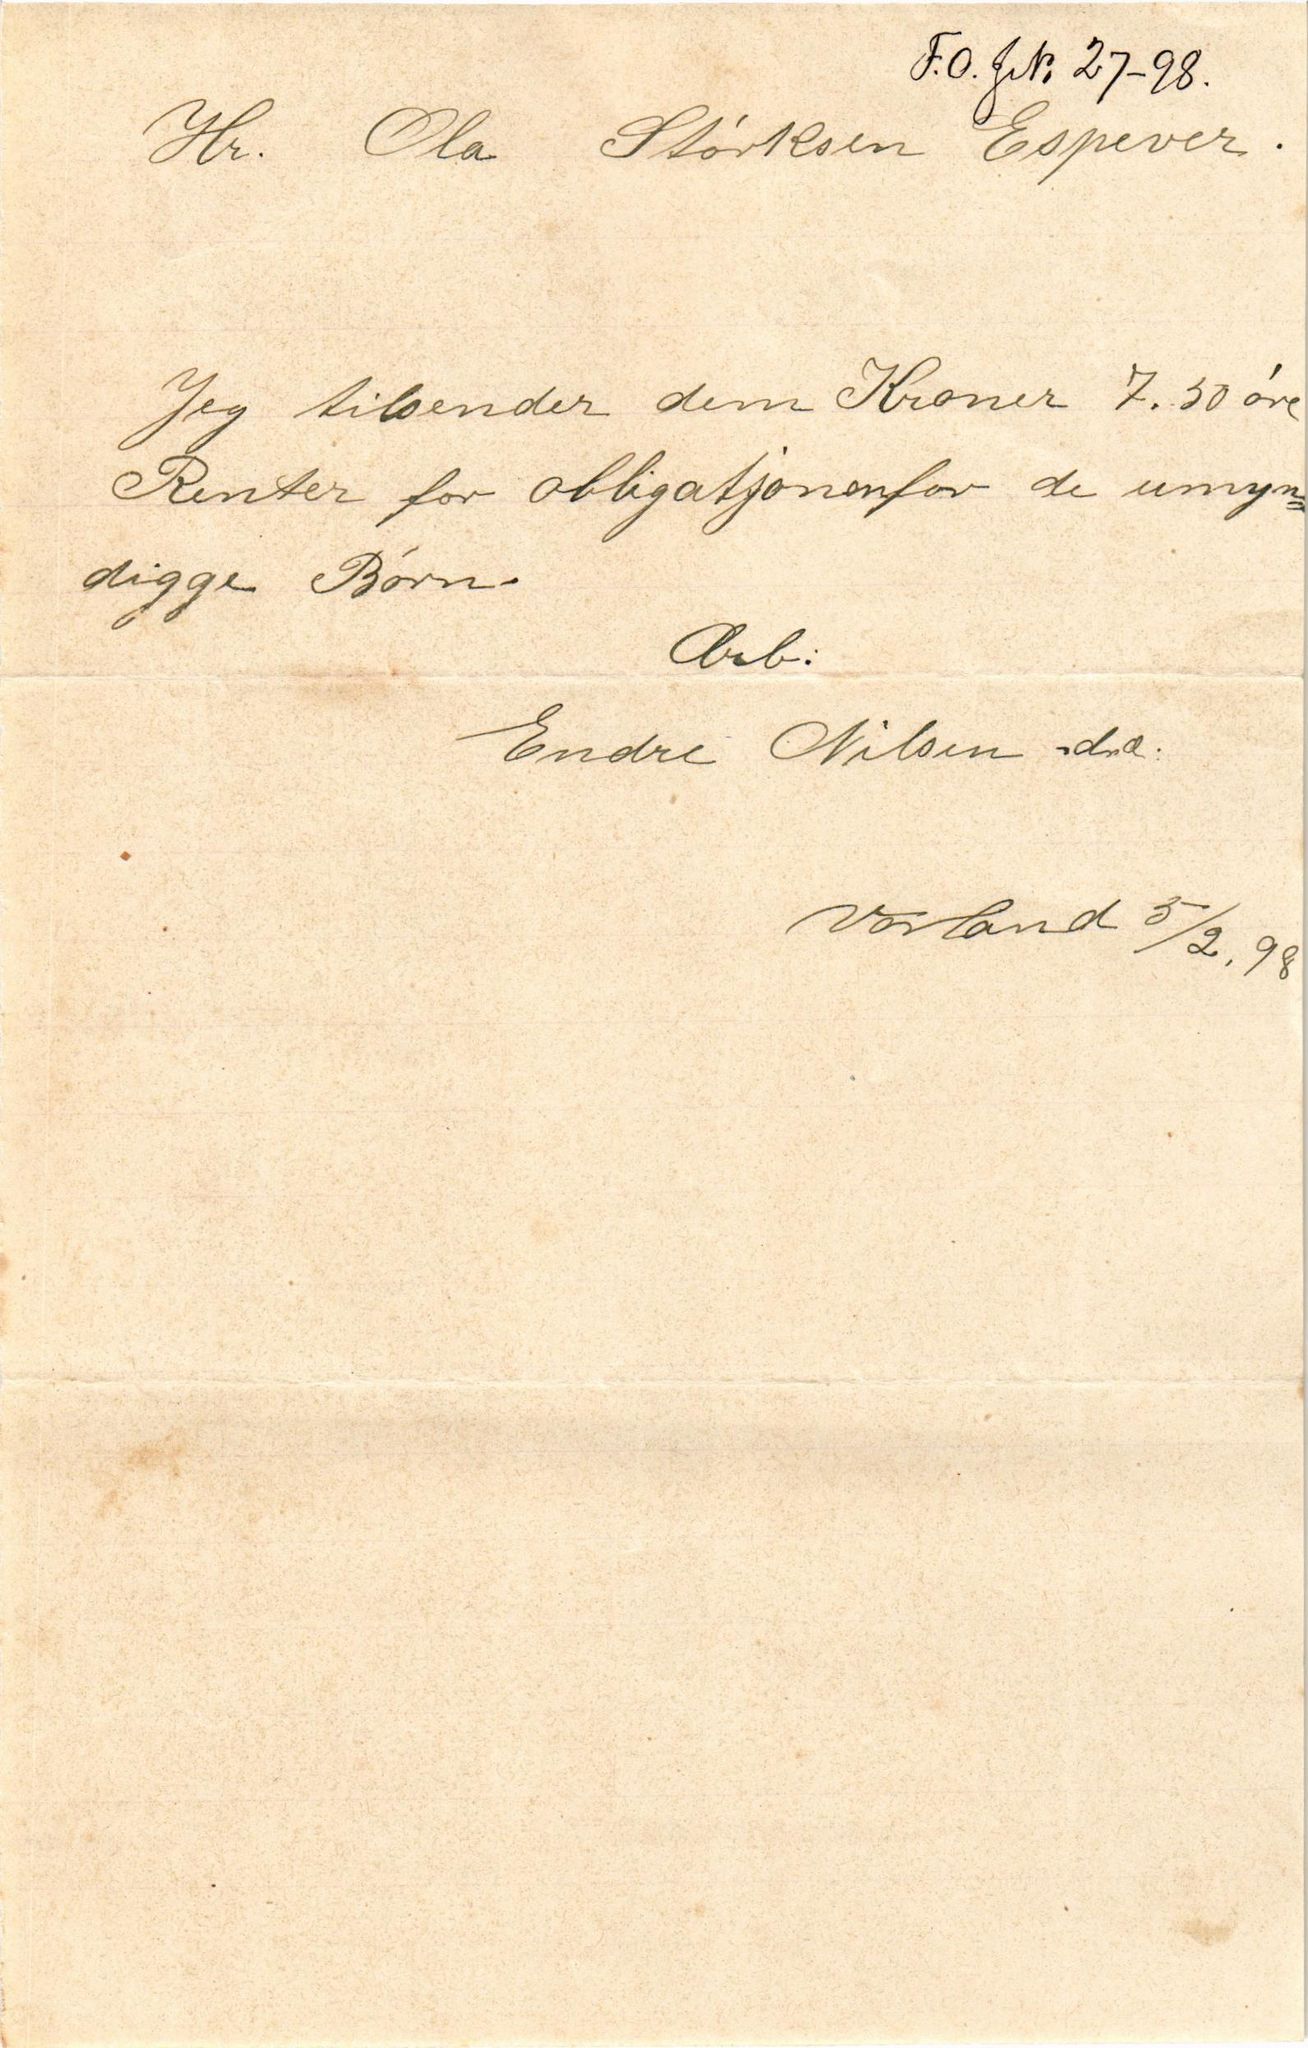 F.O. J.N. 27-98.
Hr. Ola Størksen Espever.
Jeg tilsender dem Kroner 7.50 øre
Renter for obligatjonen for de umyn=
digge Børn.
Ærb:
Endre Nilsen
Vorland 5/2.98